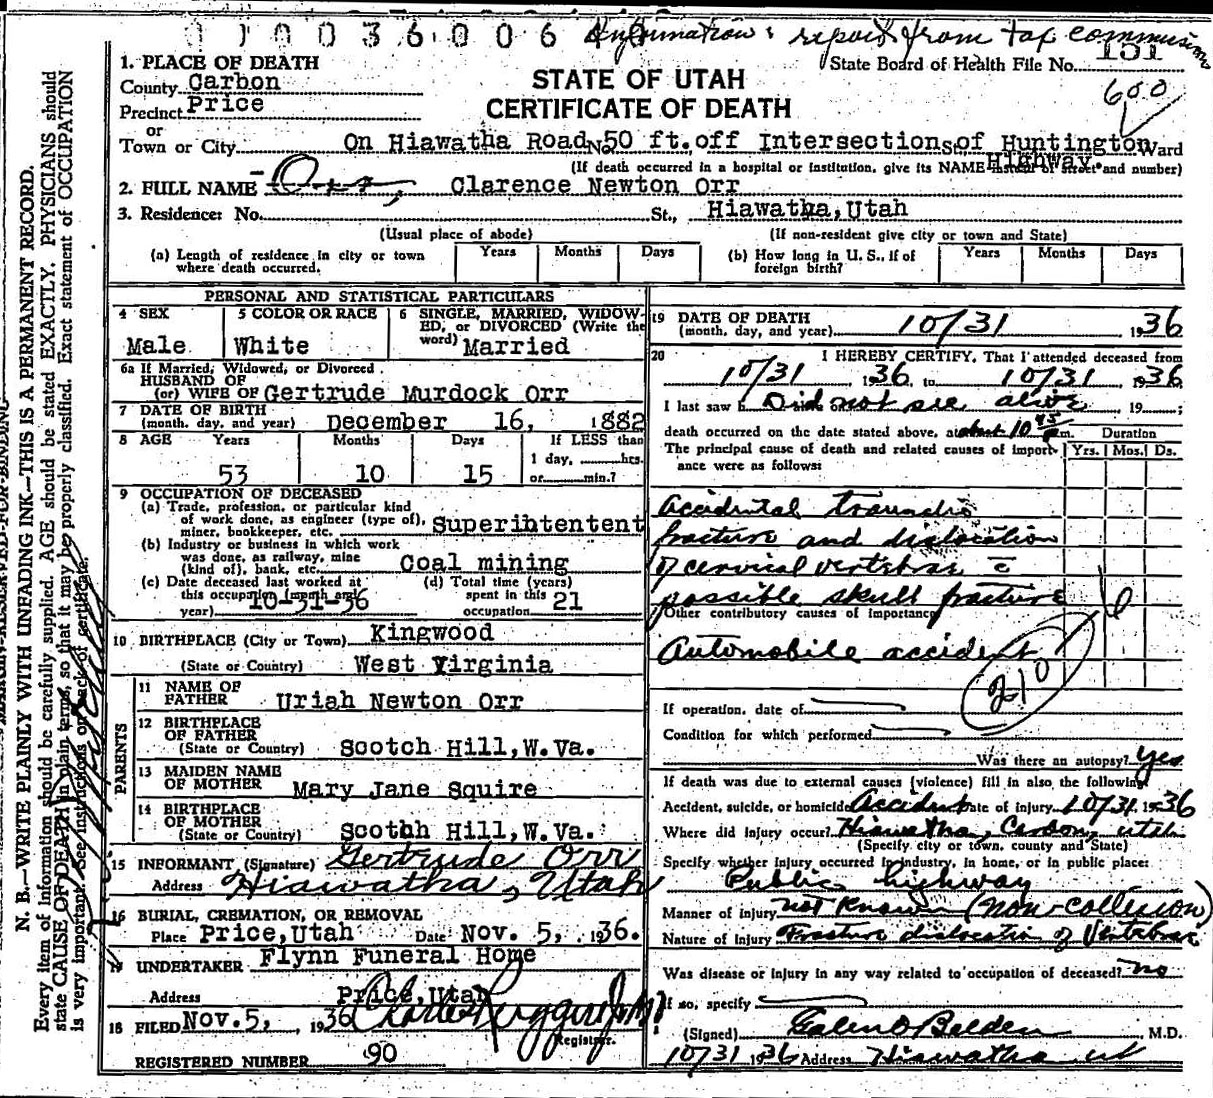 0 1 0 0 3 6 0 0 6 Information & report from tax commission
1. PLACE OF DEATH
County Carbon
Precinct Price
or
Town or City On Hiawatha Road N 50 ft. off Intersection St. of Huntington Ward
Highway.
STATE OF UTAH
CERTIFICATE OF DEATH
State Board of Health File No. 151
600
(If death occurred in a hospital or institution, give its NAME instead of street and number)
2. FULL NAME Orr, Clarence Newton Orr
3. Residence: No. St., Hiawatha, Utah
(Usual place of abode) (If non-resident give city or town and State)
(a) Length of residence in city or town where death occurred. Years Months Days
(b) How long in U. S., if of foreign birth? Years Months Days
PERSONAL AND STATISTICAL PARTICULARS
4 SEX Male
5 COLOR OR RACE White
6 SINGLE, MARRIED, WIDOWED, or DIVORCED (Write the word) Married
6a If Married, Widowed, or Divorced
HUSBAND OF
(or) WIFE OF Gertrude Murdock Orr
7 DATE OF BIRTH
(month, day, and year) December 16, 1882
8 AGE Years Months Days If LESS than
53 10 15 1 day, hrs.
or min.?
9 OCCUPATION OF DECEASED
(a) Trade, profession, or particular kind
of work done, as engineer (type of),
miner, bookkeeper, etc. Superihtentent
(b) Industry or business in which work
was done, as railway, mine
(kind of), bank, etc. Coal mining
(c) Date deceased last worked at
this occupation (month and
year) 10-31-36
(d) Total time (years)
spent in this
occupation 21
10 BIRTHPLACE (City or Town) Kingwood
(State or Country) West Virginia
PARENTS
11 NAME OF
FATHER Uriah Newton Orr
12 BIRTHPLACE
OF FATHER
(State or Country) Scotch Hill, W.Va.
13 MAIDEN NAME
OF MOTHER Mary Jane Squire
14 BIRTHPLACE
OF MOTHER
(State or Country) Scotch Hill, W.Va.
15 INFORMANT (Signature) Gertrude Orr
Address Hiawatha, Utah
16 BURIAL, CREMATION, OR REMOVAL
Place Price, Utah Date Nov. 5, 1936.
17 UNDERTAKER Flynn Funeral Home
Address Price, Utah
18 FILED Nov. 5, 1936
Registrar.
REGISTERED NUMBER 90
19 DATE OF DEATH
(month, day, and year) 10/31 1936
20 I HEREBY CERTIFY, That I attended deceased from
10/31, 1936, to 10/31, 1936
I last saw h Did not see alive, 19 ;
death occurred on the date stated above, at about 10 45 p m. Duration
The principal cause of death and related causes of importance were as follows: Yrs. Mos. Ds.
Accidental traumatic
fracture and dislocation
of cervical vertebrae c̄
possible skull fracture
Other contributory causes of importance
Automobile accident
210
If operation, date of
Condition for which performed
Was there an autopsy? yes
If death was due to external causes (violence) fill in also the following
Accident, suicide, or homicide Accident Date of injury 10/31, 1936
Where did injury occur? Hiawatha, Carbon, Utah
(Specify city or town, county and State)
Specify whether injury occurred in industry, in home, or in public place:
Public highway
Manner of injury not known (non-collision)
Nature of Injury Fracture dislocation of Vertebrae
Was disease or injury in any way related to occupation of deceased? no
If so, specify
(Signed) Galen O Belden M.D.
10/31 1936 Address Hiawatha Ut
N. B.—WRITE PLAINLY WITH UNFADING INK—THIS IS A PERMANENT RECORD.
Every item of information should be carefully supplied. AGE should be stated EXACTLY. PHYSICIANS should
state CAUSE OF DEATH in plain terms, so that it may be properly classified. Exact statement of OCCUPATION
is very important. See instructions on back of certificate.